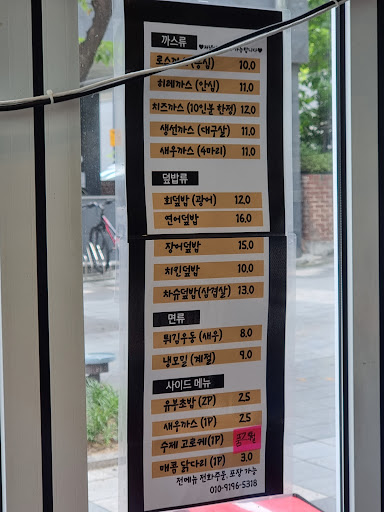 까스류
로스까스 (등심) 10.0
히레까스 (안심) 11.0
치즈까스 (10인분 한정) 12.0
생선까스 (대구살) 11.0
새우까스 (4마리) 11.0
덮밥류
회덮밥 (광어) 12.0
연어덮밥 16.0
장어덮밥 15.0
치킨덮밥 10.0
차슈덮밥(삼겹살) 13.0
면류
튀김우동 (새우) 8.0
냉모밀 (계절) 9.0
사이드 메뉴
유부초밥 (2P) 2.5
새우까스 (1P) 2.5
수제 고로케(1P)
매콤 닭다리 (1P) 3.0
전메뉴 전화주문, 포장 가능
010-9196-5318